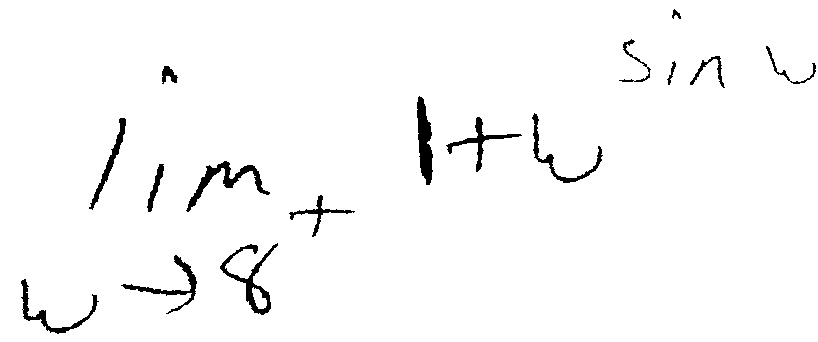 \lim_{w \to 8^+} 1 + w^{\sin w}